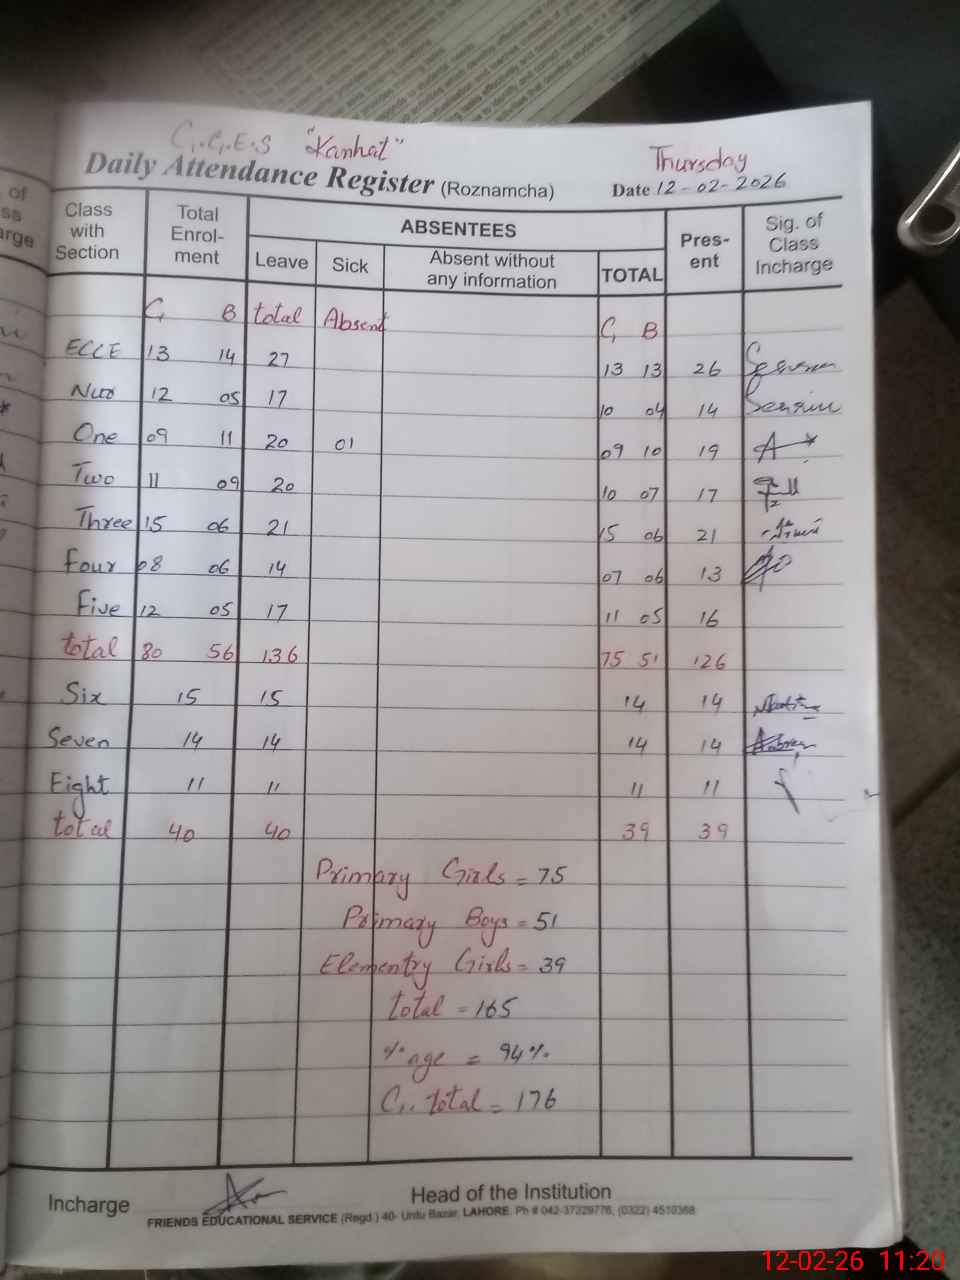 G.G.E.S "Kanhat"
Thursday
Daily Attendance Register (Roznamcha) Date 12-02-2026
Class with Section Total Enrol-ment ABSENTEES Pres-ent Sig. of Class Incharge
Leave Sick Absent without any information TOTAL
G B total Absent G B
ECCE 13 14 27 13 13 26
Nur 12 05 17 10 04 14
One 09 11 20 01 09 10 19
Two 11 09 20 10 07 17
Three 15 06 21 15 06 21
Four 08 06 14 07 06 13
Five 12 05 17 11 05 16
total 80 56 136 75 51 126
Six 15 15 14 14
Seven 14 14 14 14
Eight 11 11 11 11
total 40 40 39 39
Primary Girls = 75
Primary Boys = 51
Elementry Girls = 39
total = 165
%age = 94%
G. total = 176
Incharge Head of the Institution
FRIENDS EDUCATIONAL SERVICE (Regd.) 40- Urdu Bazar, LAHORE. Ph # 042-37229776, (0322) 4510368
12-02-26 11:20